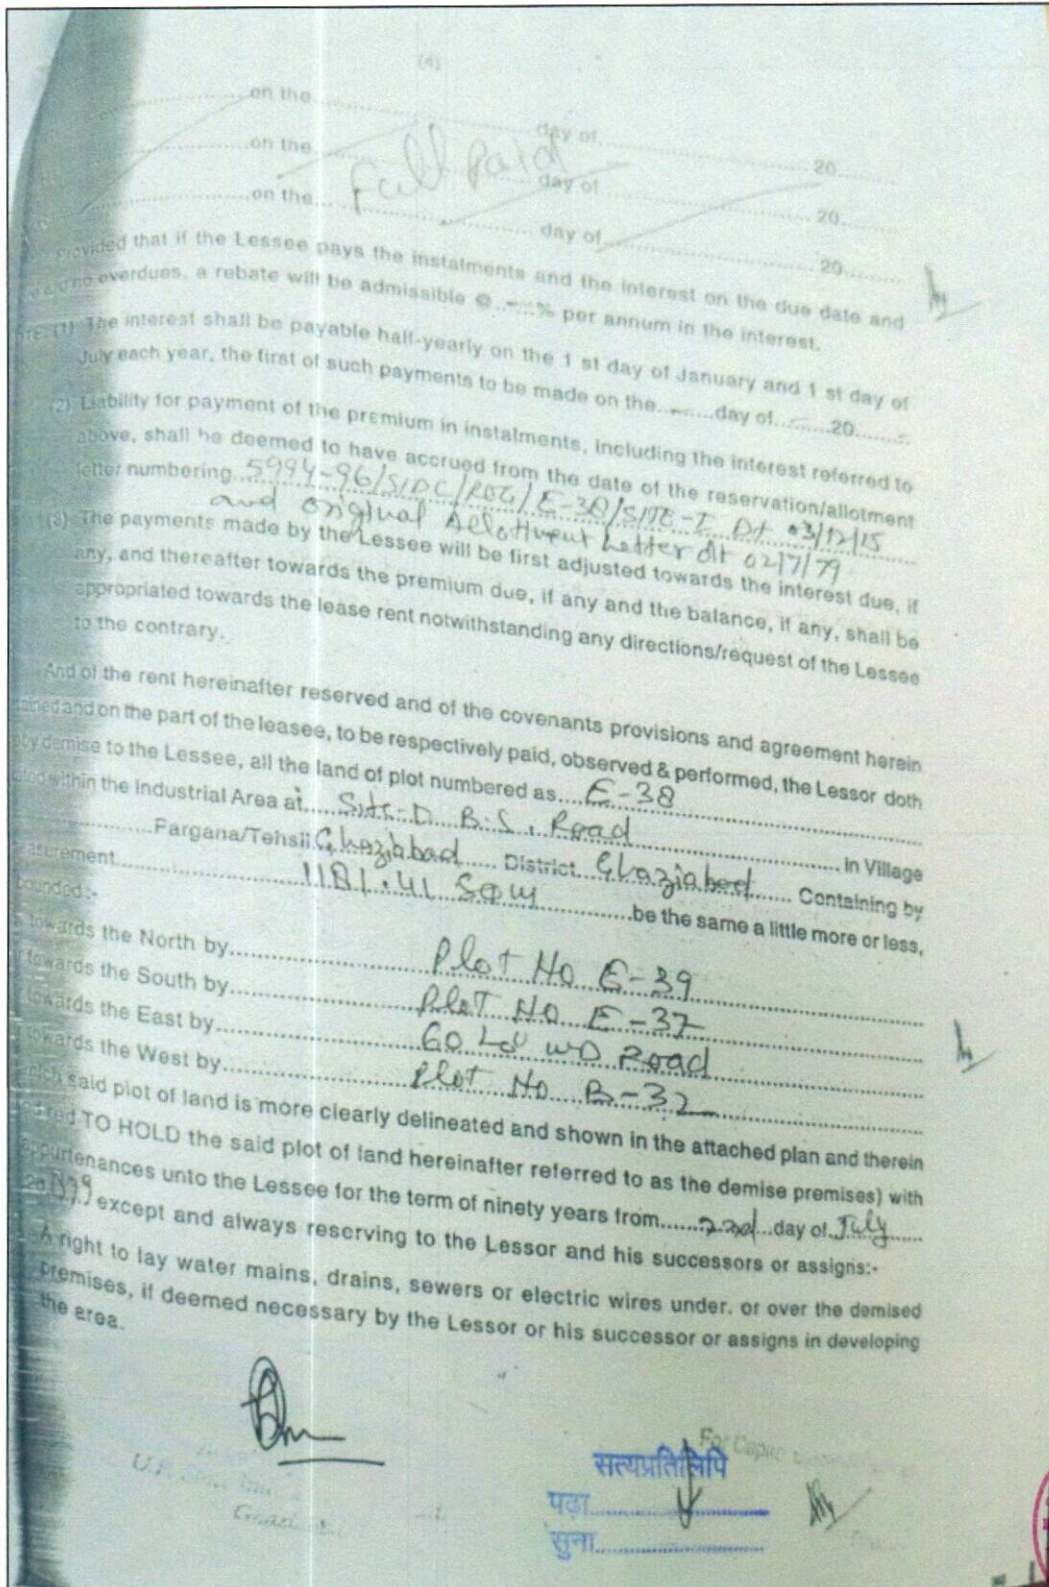 (4)
on the day of 20
on the Full Paid day of 20
on the day of 20
provided that if the Lessee pays the instalments and the interest on the due date and
no overdues, a rebate will be admissible @ ....% per annum in the interest.
(1) The interest shall be payable half-yearly on the 1 st day of January and 1 st day of
July each year, the first of such payments to be made on the........day of........20........
(2) Liability for payment of the premium in instalments, including the interest referred to
above, shall be deemed to have accrued from the date of the reservation/allotment
letter numbering 5994-96/SIDC/ROG/E-38/SITE-I Dt 03/12/15
and original Allotment Letter dt 02/7/79
(3) The payments made by the Lessee will be first adjusted towards the interest due, if
any, and thereafter towards the premium due, if any and the balance, if any, shall be
appropriated towards the lease rent notwithstanding any directions/request of the Lessee
to the contrary.
And of the rent hereinafter reserved and of the covenants provisions and agreement herein
and on the part of the leasee, to be respectively paid, observed & performed, the Lessor doth
demise to the Lessee, all the land of plot numbered as....E-38
within the Industrial Area at.....Site-I B.S. Road in Village
Pargana/Tehsil Ghaziabad District Ghaziabad Containing by
1181.41 Sqm be the same a little more or less,
bounded:-
towards the North by Plot No E-39
towards the South by Plot No E-37
towards the East by 60 WD Road
towards the West by Plot No B-32
said plot of land is more clearly delineated and shown in the attached plan and therein
TO HOLD the said plot of land hereinafter referred to as the demise premises) with
appurtenances unto the Lessee for the term of ninety years from 22nd day of July
except and always reserving to the Lessor and his successors or assigns:-
A right to lay water mains, drains, sewers or electric wires under. or over the demised
premises, if deemed necessary by the Lessor or his successor or assigns in developing
the area.
For
सत्यप्रतिलिपि
पढ़ा
सुना